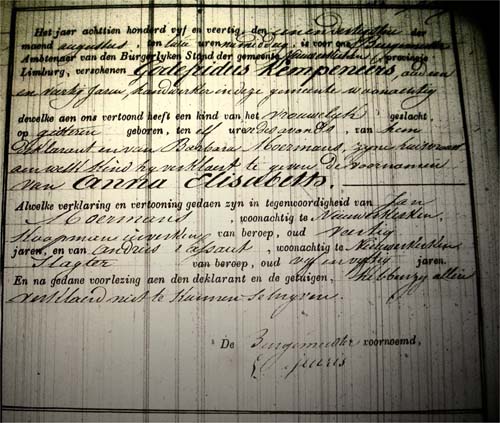 Het jaar achttien honderd vyf en veertig, den eenendertigsten der
maand augustus, ten uren middag, is voor ons Burgemeester
Ambtenaar van den Burgerlyken Stand der gemeente Nieuwerkerken, provincie
Limburg, verschenen Godefridus Kempeneers, oud een
en veertig jaren, handwerker in deze gemeente woonachtig
dewelke aen ons vertoond heeft een kind van het vrouwelyk geslacht,
op gisteren geboren, ten elf uren des avonds, van hem
deklarant en van Barbara Moermans, zyne huisvrouw
aen welk kind hy verklaert te geven de voornamen
van Anna Elisabeth.
Alwelke verklaring en vertooning gedaen zyn in tegenwoordigheid van Jan
Moermans, woonachtig te Nieuwerkerken,
van beroep, oud veertig
jaren, en van Andries woonachtig te Nieuwerkerken
Slagter van beroep, oud vyf en vyftig jaren.
En na gedane voorlezing aen den deklarant en de getuigen, hebben zy allen
verklaerd niet te kunnen schryven.
De Burgemeester voornoemd,